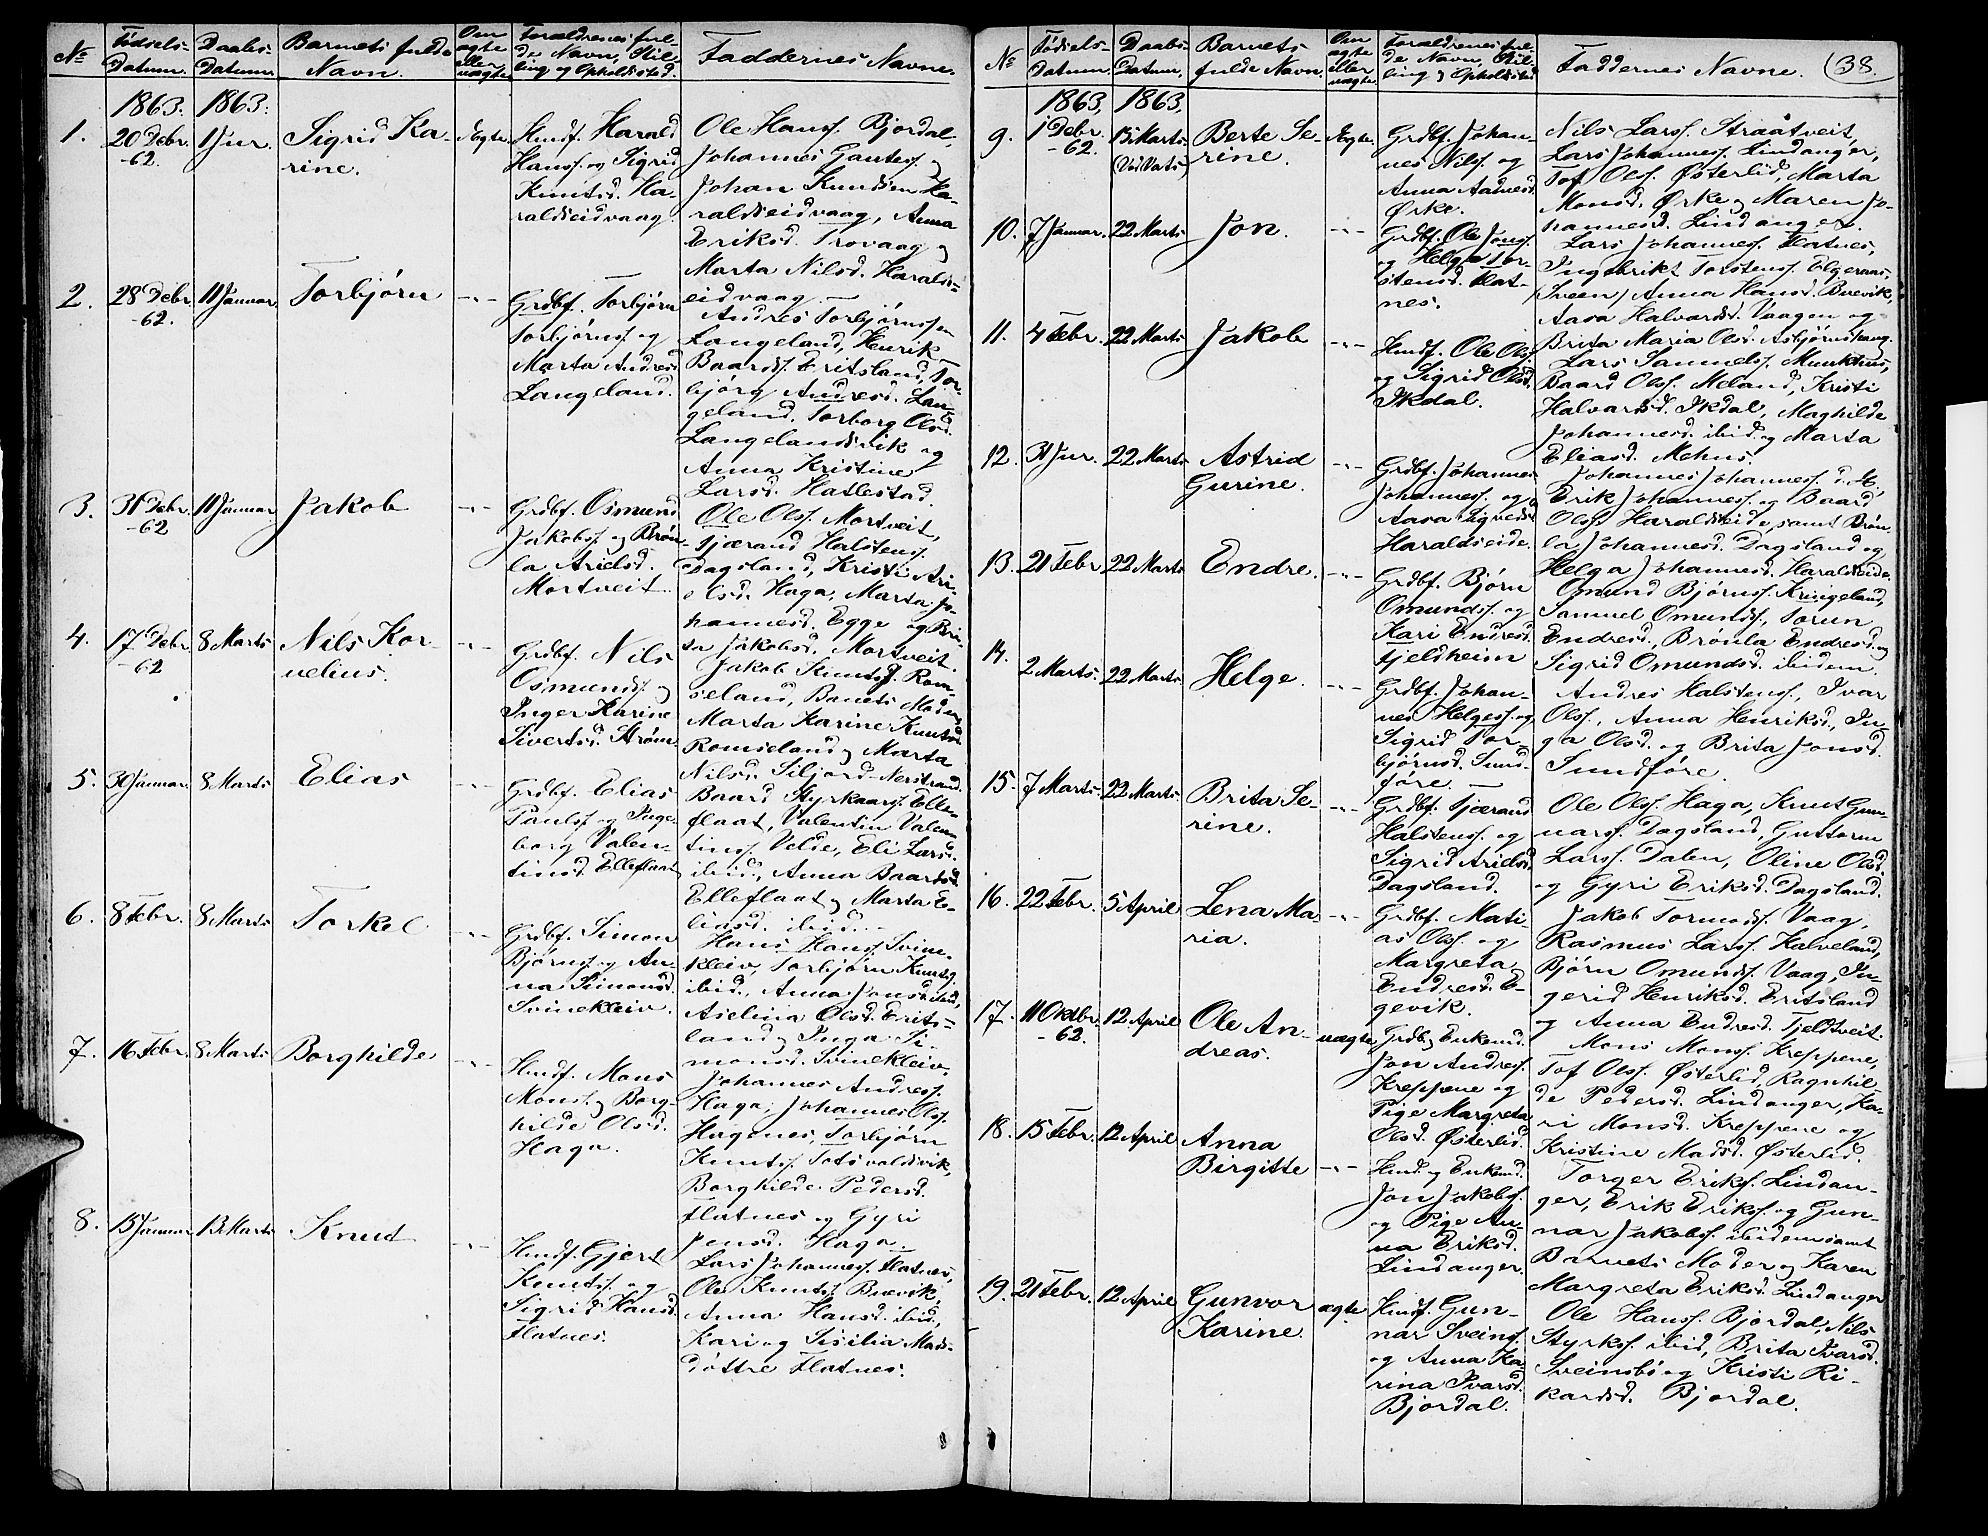 №
Fødsels-
Datum.
Daabs-
Datum.
Barnets fulde
Navn.
Om
ægte
eller
uægte
Forældrenes ful-
de Navn, Stil-
ling og Opholdssted.
Faddernes Navne.
1863. 1863.
1.
20 Debr.
-62.
1 Jnr.
Sigrid Ka-
rine.
Ægte
Husmf. Harald
Hanss. og Sigrid
Knutsd. Ha-
raldseidvaag.
Ole Hanss. Bjordal,
Johannes Gautess. og
Johan Knudsen Ha-
raldseidvaag, Anna
Eriksd. Trovaag og
Marta Nilsd. Haralds-
eidvaag.
2.
28 Debr.
-62.
11 Januar.
Torbjørn
-"-
Grdbf. Torbjørn
Torbjørns. og
Marta Andresd.
Langeland.
Andres Torbjørnss.
Langeland, Henrik
Baards. Eritsland, Tor-
bjørg Andresd. Lan-
geland, Torborg Olsd.
Langelandsvik og
Anna Kristine
Larsd. Hatlestad.
3.
31 Debr.
-62
11 Januar.
Jakob
-"-
Grdbf. Osmund
Jakobs. og Brøn-
la Arielsd.
Mortveit.
Ole Olss. Mortveit,
Tjærand Halstens.
Dagsland, Kristi Ari-
elsd. Haga, Marta Jo-
hannesd. Egge og Bri-
ta Jakobsd. Mortveit.
4.
17 Debr.
-62
8 Marts
Nils Kor-
nelius.
-"-
Grdbf. Nils
Osmunds. og
Inger Karine
Sivertsd. Strøm.
Jakob Knuts. Rom-
seland, Banets Moder,
Marta Karine Knutsd.
Romseland og Marta
Nilsd. Siljord-Nerstrand.
5.
30 Januar.
8 Marts
Elias
-"-
Grdbf. Elias
Pauls. og Inge-
borg Valen-
tinsd. Elleflaat
Baard Styrkaars. Elle-
flaat, Valentin Valen-
tins. Velde, Eli Larsd.
ibid., Anna Baardsd.
Elleflaat og Marta E-
liasd. ibid.
6.
8 Febr.
8 Marts
Torkel
-"-
Grdbf. Simon
Bjørns. og An-
na Simonsd.
Svinekleiv.
Hans Hanss. Svine-
kleiv, Torbjørn Knuts.
ibid., Anna Jonsd. ibid,
Aselina Olsd. Erits-
land og Inga Si-
monsd. Svinekleiv.
7.
16 Febr.
8 Marts
Borghilde
-"-
Husmf. Mons
Monss. og Borg-
hilde Olsd.
Haga.
Johannes Andress.
Haga, Johannes Olss.
Hagenes, Torbjørn
Knuts. Totsvaldsvik,
Borghilde Pedersd.
Flatnes og Gyri
Jensd. Haga.
8.
15 Januar
13 Marts
Knud
-"-
Husmf. Gjert
Knuts. og
Sigrid Hansd.
Flatnes.
Lars Johanness. Flatnes,
Ole Knuts. Buevik,
Anna Hansd. ibid,
Kari og Sisilia Mads-
døttre Flatnes.
№
Fødsels-
Datum.
Daabs-
Datum.
Barnets
fulde Navn.
Om
ægte
eller
uægte
Forældrenes ful-
de Navn, Stil-
ling og Opholdssted
Faddernes Navne.
38.
1863, 1863,
9.
1 Debr.
-62.
15 Marts
(Ved Vats)
Berte Se-
rine.
Ægte
Grdbf. Johan-
nes Nils. og
Anna Aadnesd.
Ørke.
Nils Larss. Straatveit,
Lars Johanness. Lindanger,
Tof Olss. Østerlid, Marta
Monsd. Ørke og Maren Jo-
hannesd. Lindanger.
10.
7 Januar.
22 Marts
Jon.
-"-
Grdbf. Ole Jons.
og Helga Tor-
stensd. Flat-
nes.
Lars Johanness. Flatnes,
Ingebrikt Torstens. Elgeraas,
(Sveen) Anna Hansd. Buevik,
Aasa Halvardsd. Vaagen og
Brita Maria Olsd. Asbjørnshaug.
11.
4 Febr.
22 Marts
Jakob
-"-
Husmf. Ole Olss.
og Sigrid Olsd.
Ikdal.
Lars Samuels. Munkhus,
Baard Olss. Meland, Kristi
Halvardsd. Ikdal, Maghilde
Johannesd. ibid. og Marta
Eliasd. Mehus.
12.
31 Jnr.
22 Marts
Astrid
Gurine.
-"-
Grdbf. Johannes
Johanness. og
Aasa Sigvedsd.
Haraldseide.
Johannes Johanness. d. Æ,
Erik Johanness. og Baard
Olss. Haraldseide, samt Brøn-
la Johannesd. Dagsland og
Helga Johannesd. Haraldseide.
13.
21 Febr.
22 Marts
Endre.
-"-
Grdbf. Bjørn
Omunds. og
Kari Endresd.
Fjeldheim
Omund Bjørns. Kringeland,
Samuel Omunds., Torun
Endresd., Brønla Endresd. og
Sigrid Omundsd. ibidem.
14.
2 Marts.
22 Marts
Helge.
-"-
Grdbf. Johan-
nes Helgess. og
Sigrid Tor-
bjørnsd. Sund-
føre.
Andres Halstens., Ivar
Olss., Anna Henriksd., In-
ga Olsd. og Brita Jonsd.
Sundføre.
15.
7 Marts.
22 Marts
Brita Se-
rine.
-"-
Grdbf. Tjærand
Halstens. og
Sigrid Arielsd.
Dagsland.
Ole Olss. Haga, Knut Gun-
nars. Dagsland, Guttorm
Larss. Dalen, Oline Olsd.
og Gyri Eriksd. Dagsland.
16.
22 Febr.
5 April
Lena Ma-
ria.
-"-
Grdbf. Mati-
as Olss. og
Margreta
Endresd. E-
gevik.
Jakob Tormods. Vaag,
Rasmus Larss. Halveland,
Bjørn Omunds. Vaag, In-
gerid Henriksd. Eritsland
og Anna Endresd. Fjeldtveit.
17.
11 Oktbr.
-62.
12 April
Ole An-
dreas.
uægte
Grdb. og Enkemd.
Jon Andress.
Kreppene og
Pige Margreta
Olsd. Østerlid.
Mons Monss. Kreppene,
Tof Olss. Østerlid, Ragnhil-
de Pedersd. Lindanger, Ka-
ri Monsd. Kreppene og
Kristine Madsd. Østerlid.
18.
15 Febr.
12 April
Anna
Bergitte
-"-
Husmd. og Enkemd.
Jon Jakobs.
og Pige An-
na Eriksd.
Lindanger.
Torger Eriks. Lindan-
ger, Erik Eriks. og Gun-
nar Jakobs. ibidem samt
Barnets Moder og Karen
Margreta Eriksd. Lindanger
19.
21 Febr.
12 April
Gunvor
Karine.
ægte
Husmf. Gun-
nar Sveins.
og Anna Ka-
rina Ivarsd.
Bjordal.
Ole Hanss. Bjordal, Nils
Styrks. ibid, Brita Ivarsd.
Sveinsbø og Kristi Ri-
kardsd. Bjordal.